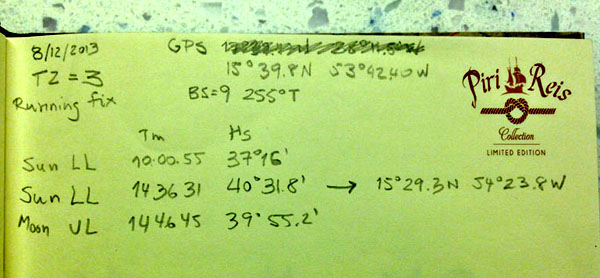 8/12/2013 GPS
TZ=3 15°39.8N 53°42.40W
Running fix BS=9 255°T
Piri Reis
Collection
LIMITED EDITION
Tm Hs
Sun LL 10.00.55 37°16'
Sun LL 14 36 31 40°31.8' → 15°29.3N 54°23.8W
Moon UL 14 46 45 39°55.2'